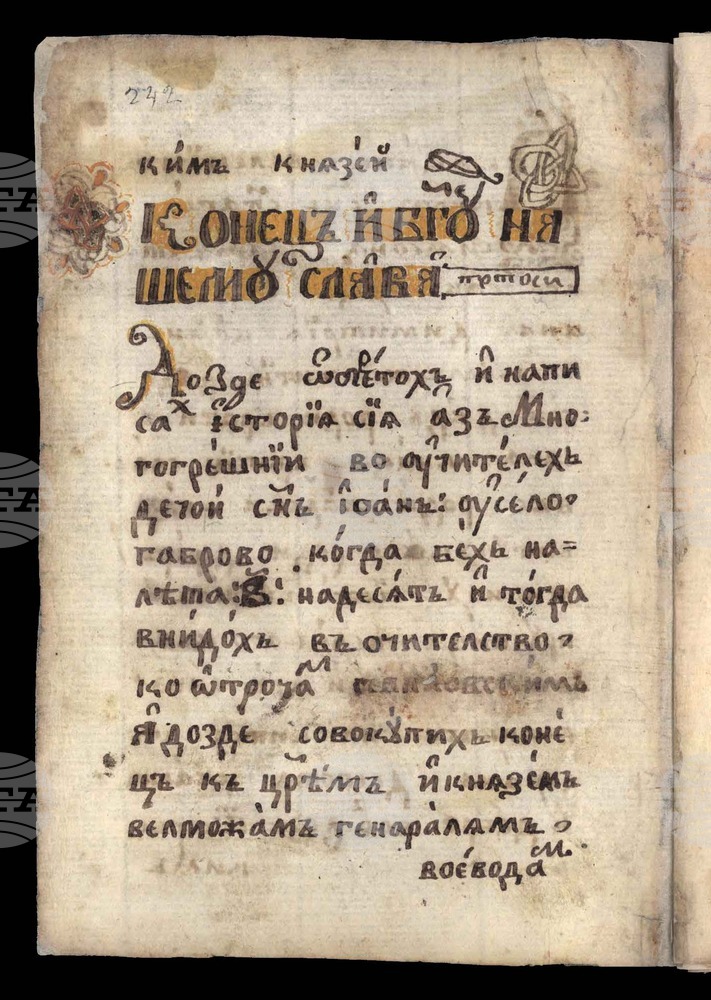 242
ки́мъ княз́ей
Конецъ и҆ бг҃ꙋ на
шемꙋ сла́ва
До зде ѡ҆брѣтохъ и҆ напи
сахъ і҆сторїѧ сїѧ а҆зъ Мно:
гогре́шнїи во ᲂу҆чите́лехъ
детой сн҃ъ і҆ѡа́нъ: ᲂу҆ се́ло
габрово ко́гда бехъ на=
лѣта: в҃: надесѧ́ть и҆ то́гда
вни́до́хъ въ очителство
ко ѡ҆троча́м
Я҆ дозде́ совокꙋпихъ коне́
цъ къ цр҃е́мъ и҆ князе́мъ
велможа́мъ генара́лямъ
вое́вода́м